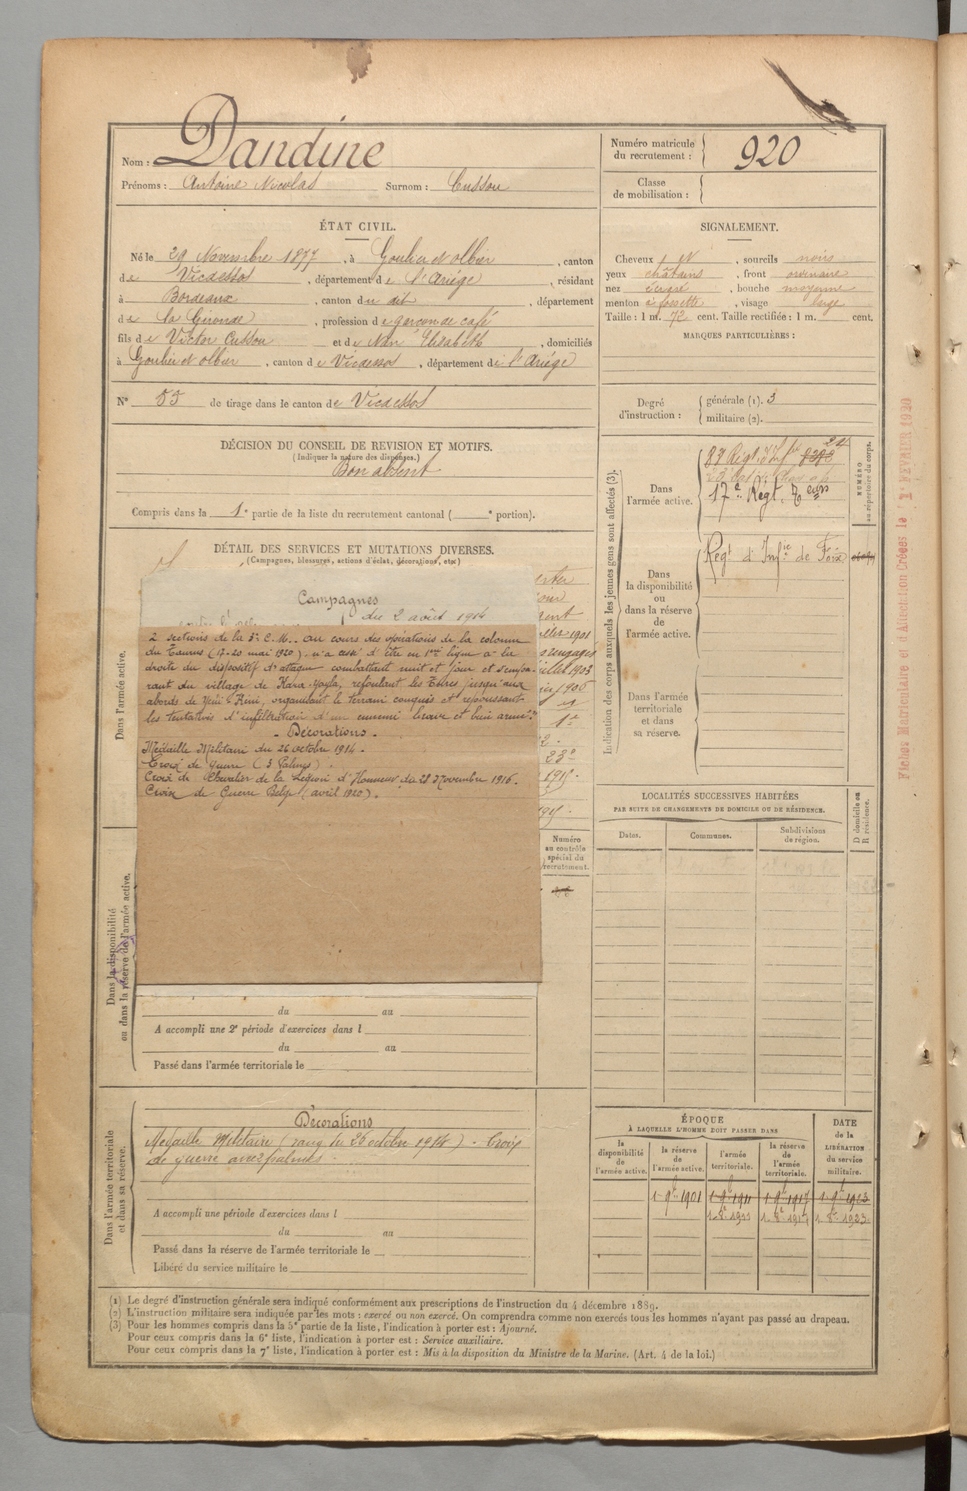 Nom : Dandine
Prénoms : Antoine Nicolas Surnom : Cussou
Numéro matricule
du recrutement : 920
Classe
de mobilisation :
ÉTAT CIVIL.
Né le 29 Novembre 1877, à Goulier et Olbier, canton
de Vicdessos, département de l'Ariége, résidant
à Bordeaux, canton du dit, département
de la Gironde, profession de garçon de café
fils de Victor Cussou et de Elisabeth, domiciliés
à Goulier et Olbier, canton de Vicdessos, département de l'Ariége
N° 53 de tirage dans le canton de Vicdessos
SIGNALEMENT.
Cheveux et, sourcils noirs
yeux châtains, front ordinaire
nez, bouche moyenne
menton à fossette, visage large
Taille : 1 m. 72 cent. Taille rectifiée : 1 m. cent.
MARQUES PARTICULIÈRES :
Degré
d'instruction :
générale (1). 3
militaire (2).
DÉCISION DU CONSEIL DE REVISION ET MOTIFS.
(Indiquer la nature des dispenses.)
Bon absent
Compris dans la 1e partie de la liste du recrutement cantonal ( e portion).
DÉTAIL DES SERVICES ET MUTATIONS DIVERSES.
(Campagnes, blessures, actions d'éclat, décorations, etc.)
Dans l'armée active.
Campagnes
du 2 août 1914
2 sections de la 3e C.M. au cours des opérations de la colonne
du Taurus (17-20 mai 1920). n'a cessé d'être en 1ère ligne à la
droite du dispositif d'attaque combattant nuit et jour et s'empa-
rant du village de Kara-, refoulant les Turcs jusqu'aux
abords de, organisant le terrain conquis et repoussant
les tentatives d'infiltration d'un ennemi brave et bien armé."
- Décorations -
Médaille Militaire du 26 octobre 1914 -
Croix de guerre (3 Palmes) -
Croix de Chevalier de la Légion d'Honneur du 28 Novembre 1916 -
Croix de Guerre Belge (avril 1920) -
1901
rengagé
juillet 1903
1906
Numéro
au contrôle
spécial du
recrutement.
Dans la disponibilité
ou dans la réserve de l'armée active.
du au
A accompli une 2e période d'exercices dans l
du au
Passé dans l'armée territoriale le
Dans l'armée territoriale
et dans sa réserve.
Décorations
Médaille Militaire (rang du 25 octobre 1914) - Croix
de guerre avec palmes -
A accompli une période d'exercices dans l
du au
Passé dans la réserve de l'armée territoriale le
Libéré du service militaire le
Indication des corps auxquels les jeunes gens sont affectés (3).
NUMÉRO
au répertoire du corps.
Dans
l'armée active.
17e Régt.
Dans
la disponibilité
ou
dans la réserve
de
l'armée active.
Régt d'Infie de Foix
Dans l'armée
territoriale
et dans
sa réserve.
LOCALITÉS SUCCESSIVES HABITÉES
PAR SUITE DE CHANGEMENTS DE DOMICILE OU DE RÉSIDENCE.
Dates. Communes. Subdivisions
de région.
D domicile ou
R résidence.
ÉPOQUE
À LAQUELLE L'HOMME DOIT PASSER DANS
la
disponibilité
de
l'armée active.
la réserve
de
l'armée active.
l'armée
territoriale.
la réserve
de
l'armée
territoriale.
DATE
de la
LIBÉRATION
du service
militaire.
1 9bre 1901 1 9bre 1911 1 9bre 1917 1 9bre 1923
1. 8bre 1911 1. 8bre 1917 1. 8bre 1923
(1) Le degré d'instruction générale sera indiqué conformément aux prescriptions de l'instruction du 4 décembre 1889.
(2) L'instruction militaire sera indiquée par les mots : exercé ou non exercé. On comprendra comme non exercés tous les hommes n'ayant pas passé au drapeau.
(3) Pour les hommes compris dans la 5e partie de la liste, l'indication à porter est : Ajourné.
Pour ceux compris dans la 6e liste, l'indication à porter est : Service auxiliaire.
Pour ceux compris dans la 7e liste, l'indication à porter est : Mis à la disposition du Ministre de la Marine. (Art. 4 de la loi.)
Fiches Matriculaire et d'Affectation Créées le 1r FEVRIER 1920